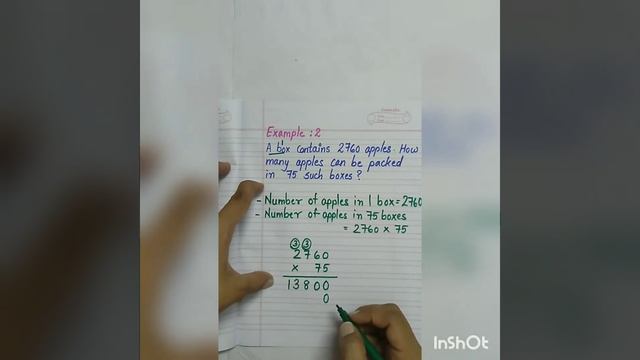 Example : 2
A box contains 2760 apples. How
many apples can be packed
in 75 such boxes ?
- Number of apples in 1 box = 2760
- Number of apples in 75 boxes
= 2760 × 75
3 3
2760
× 75
13800
0
InShOt